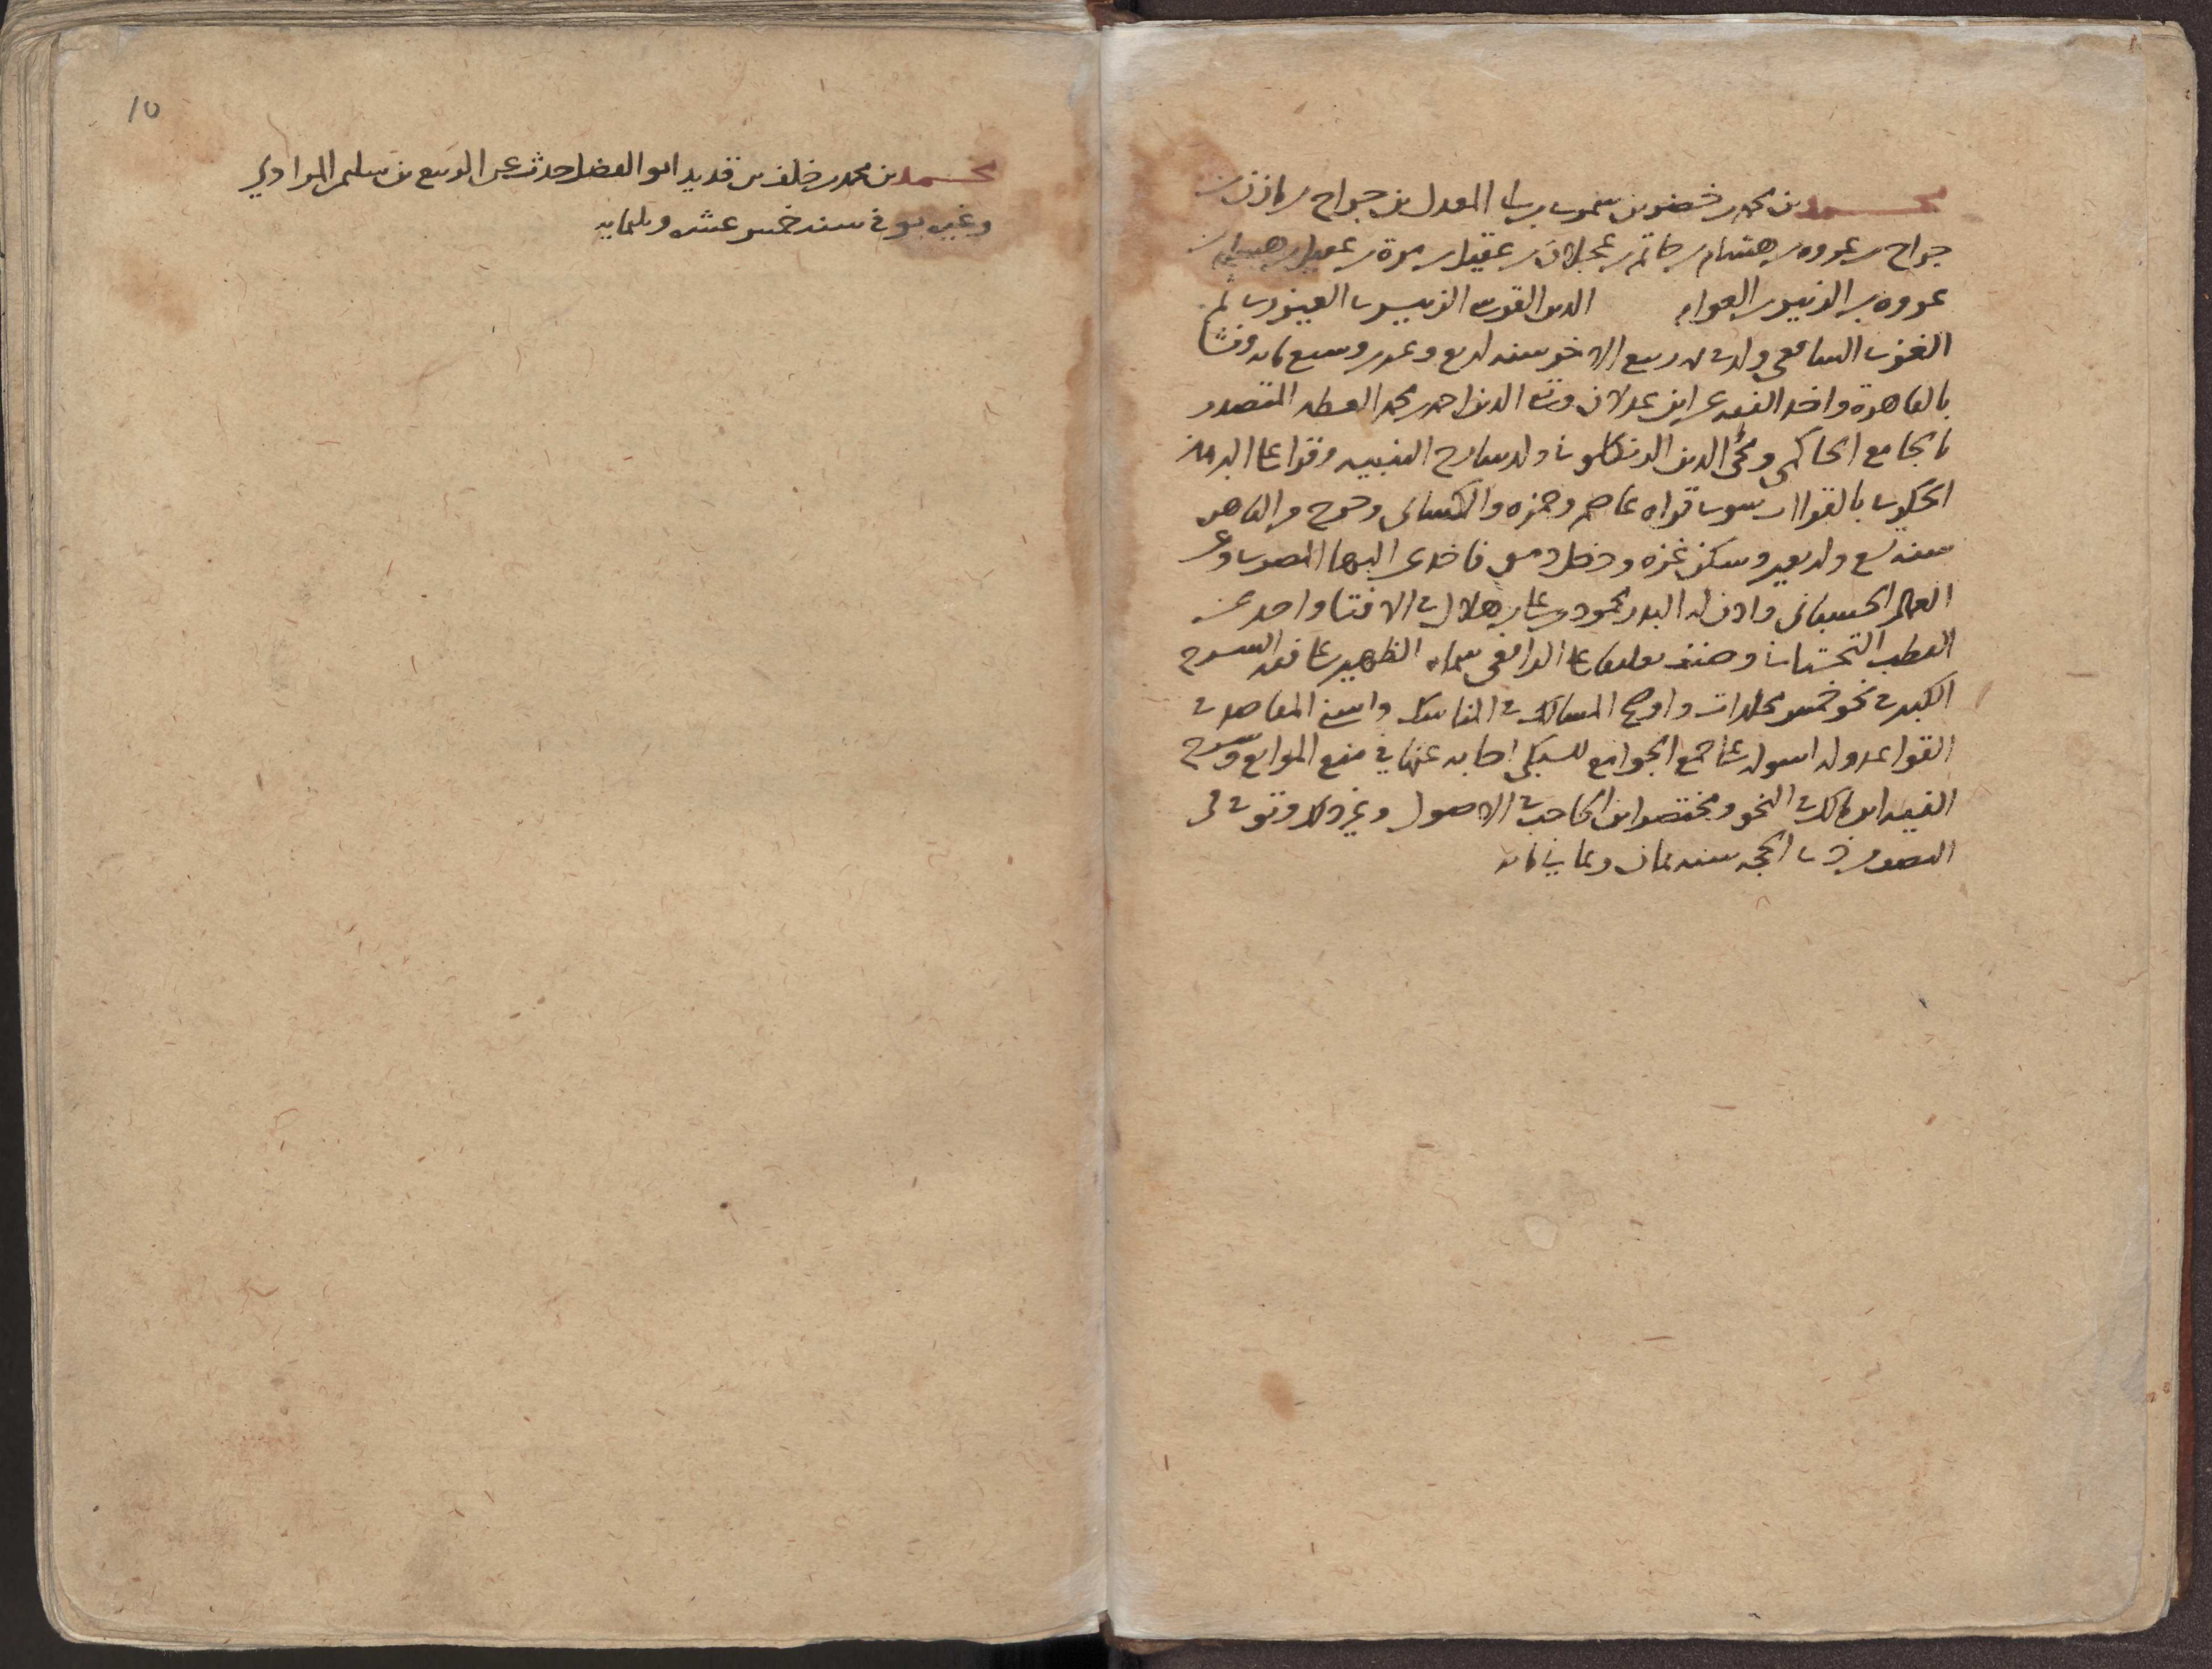 محمد بن محمد بن خضر بن سمرى بن المعدل بن جراح بن مازن بن
جراح بن عروه بن هشام بن حاتم بن عجلان بن عقيل بن مرة بن عقيل بن هشام بن
عروه بن الزبير بن العوام الدين القرشى الزبيرى العيزرى ثم
الغزى الشافعى ولد فى ربيع الاخر سنه اربع وعشرين وسبع مايه ونشا
بالقاهرة واخذ الفقه عن ابن عدلان وتقى الدين احمد بن محمد العطار المتصدر
بالجامع الحاكمى ومحى الدين الزنكلونى ولد شارح التنبيه وقرا على البرهان
الحكرى بالقراات سوى قراه عاصم وحمزه والكسائى وخرج من القاهره
سنه تسع واربعين وسكن غزه ودخل دمشق فاخذ عن البها المصرى وعن
العماد الحسبانى واذن له البدر محمود بن على بن هلال فى الافتا واخذ عن
القطب التحتانى وصنف تعليقا على الرافعى سماه الظهير على فقه الشرح
الكبير فى نحو خمس مجلدات واوضح المسالك فى المناسك واسنى المقاصد فى
القواعد وله اسوله على جمع الجوامع للسبكى اجابه عنها فى منع الموانع وشرح
الفيه ابن مالك فى النحو ومختصر ابن الحاجب فى الاصول وغير ذلك وتوفى فى
النصف من ذى الحجه سنه ثمان وثمانى مايه
10
محمد بن محمد بن خلف بن قديد ابو الفضل حدث عن الربيع بن سليمن المرادي
وغيره توفى سنه خمس عشره وثلثمايه